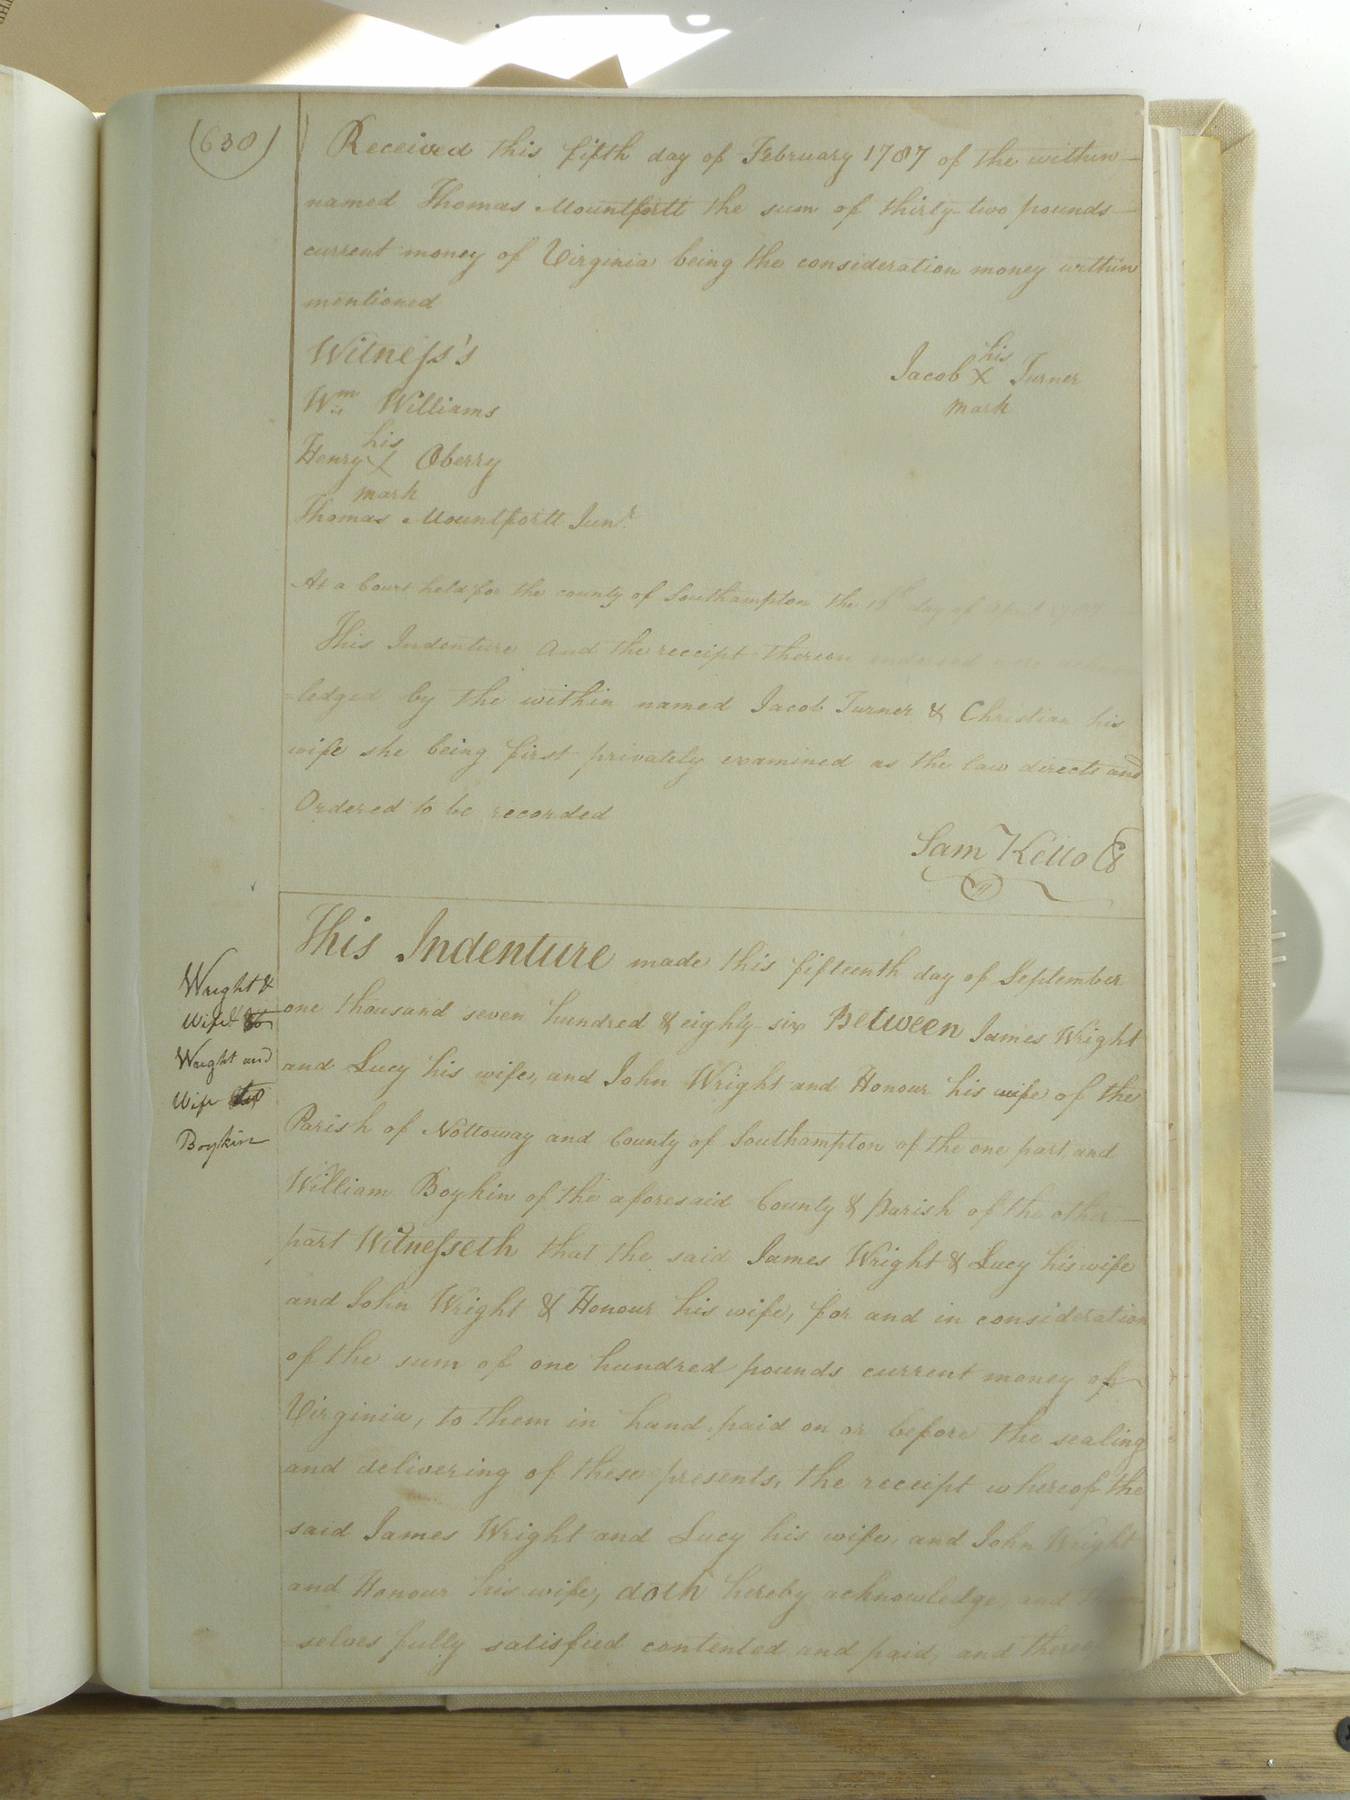 (630)
Received this fifth day of February 1787 of the within
named Thomas Mountfortt the sum of thirty two pounds
current money of Virginia being the consideration money within
mentioned
Witneſs's
his
Jacob X Turner
mark
Wm Williams
his
Henry X Oberry
mark
Thomas Mountfortt Junr
At a Court held for the county of Southampton the day of April
This Indenture and the receipt thereon endorsed were
ledged by the within named Jacob Turner & Christian his
wife she being first privately examined as the law directs and
Ordered to be recorded
Sam Kello
This Indenture made this fifteenth day of September
one thousand seven hundred & eighty six Between James Wright
and Lucy his wife, and John Wright and Honour his wife of the
Parish of Nottoway and County of Southampton of the one part, and
William Boykin of the aforesaid County & Parish of the other
part Witneſseth that the said James Wright & Lucy his wife
and John Wright & Honour his wife, for and in consideration
of the sum of one hundred pounds current money of
Virginia, to them in hand paid on or before the sealing
and delivering of these presents, the receipt whereof the
said James Wright and Lucy his wife, and John Wright
and Honour his wife, doth hereby acknowledge and
selves fully satisfied contented and paid, and
Wright &
Wife
Wright and
Wife
Boykin